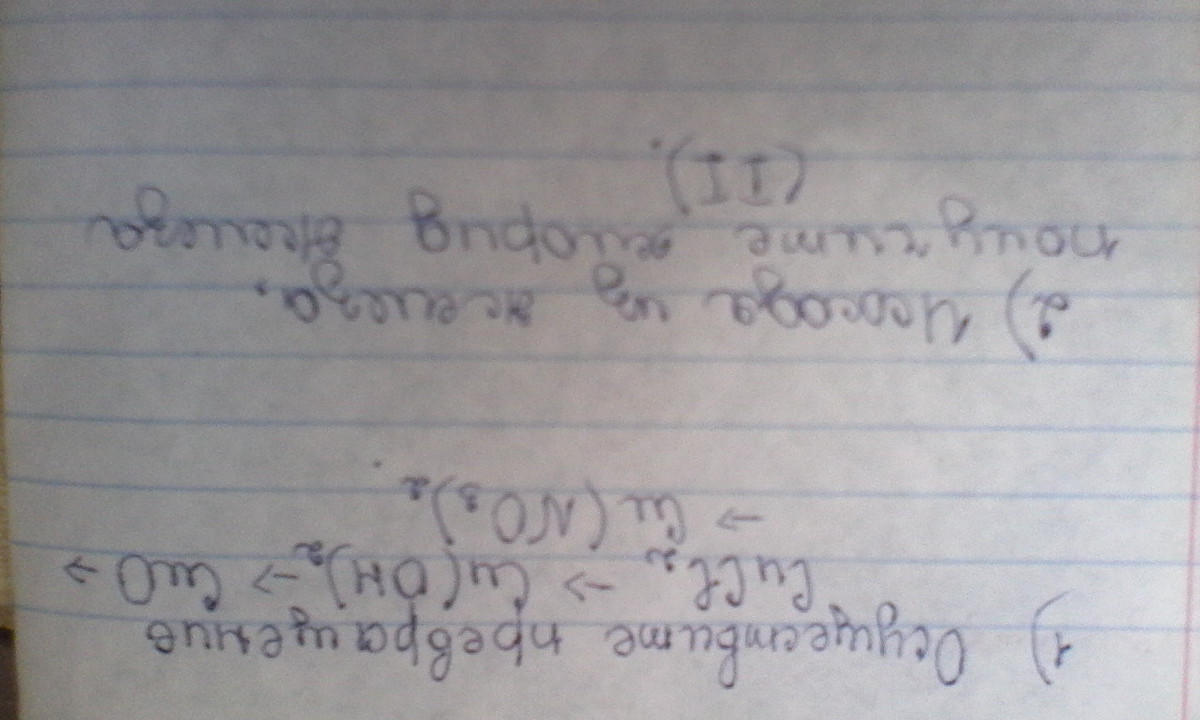 1) Осуществите превращение
CuCl₂ → Cu(OH)₂ → CuO →
→ Cu(NO₃)₂.
2) Исходя из железа,
получите хлорид железа
(II).